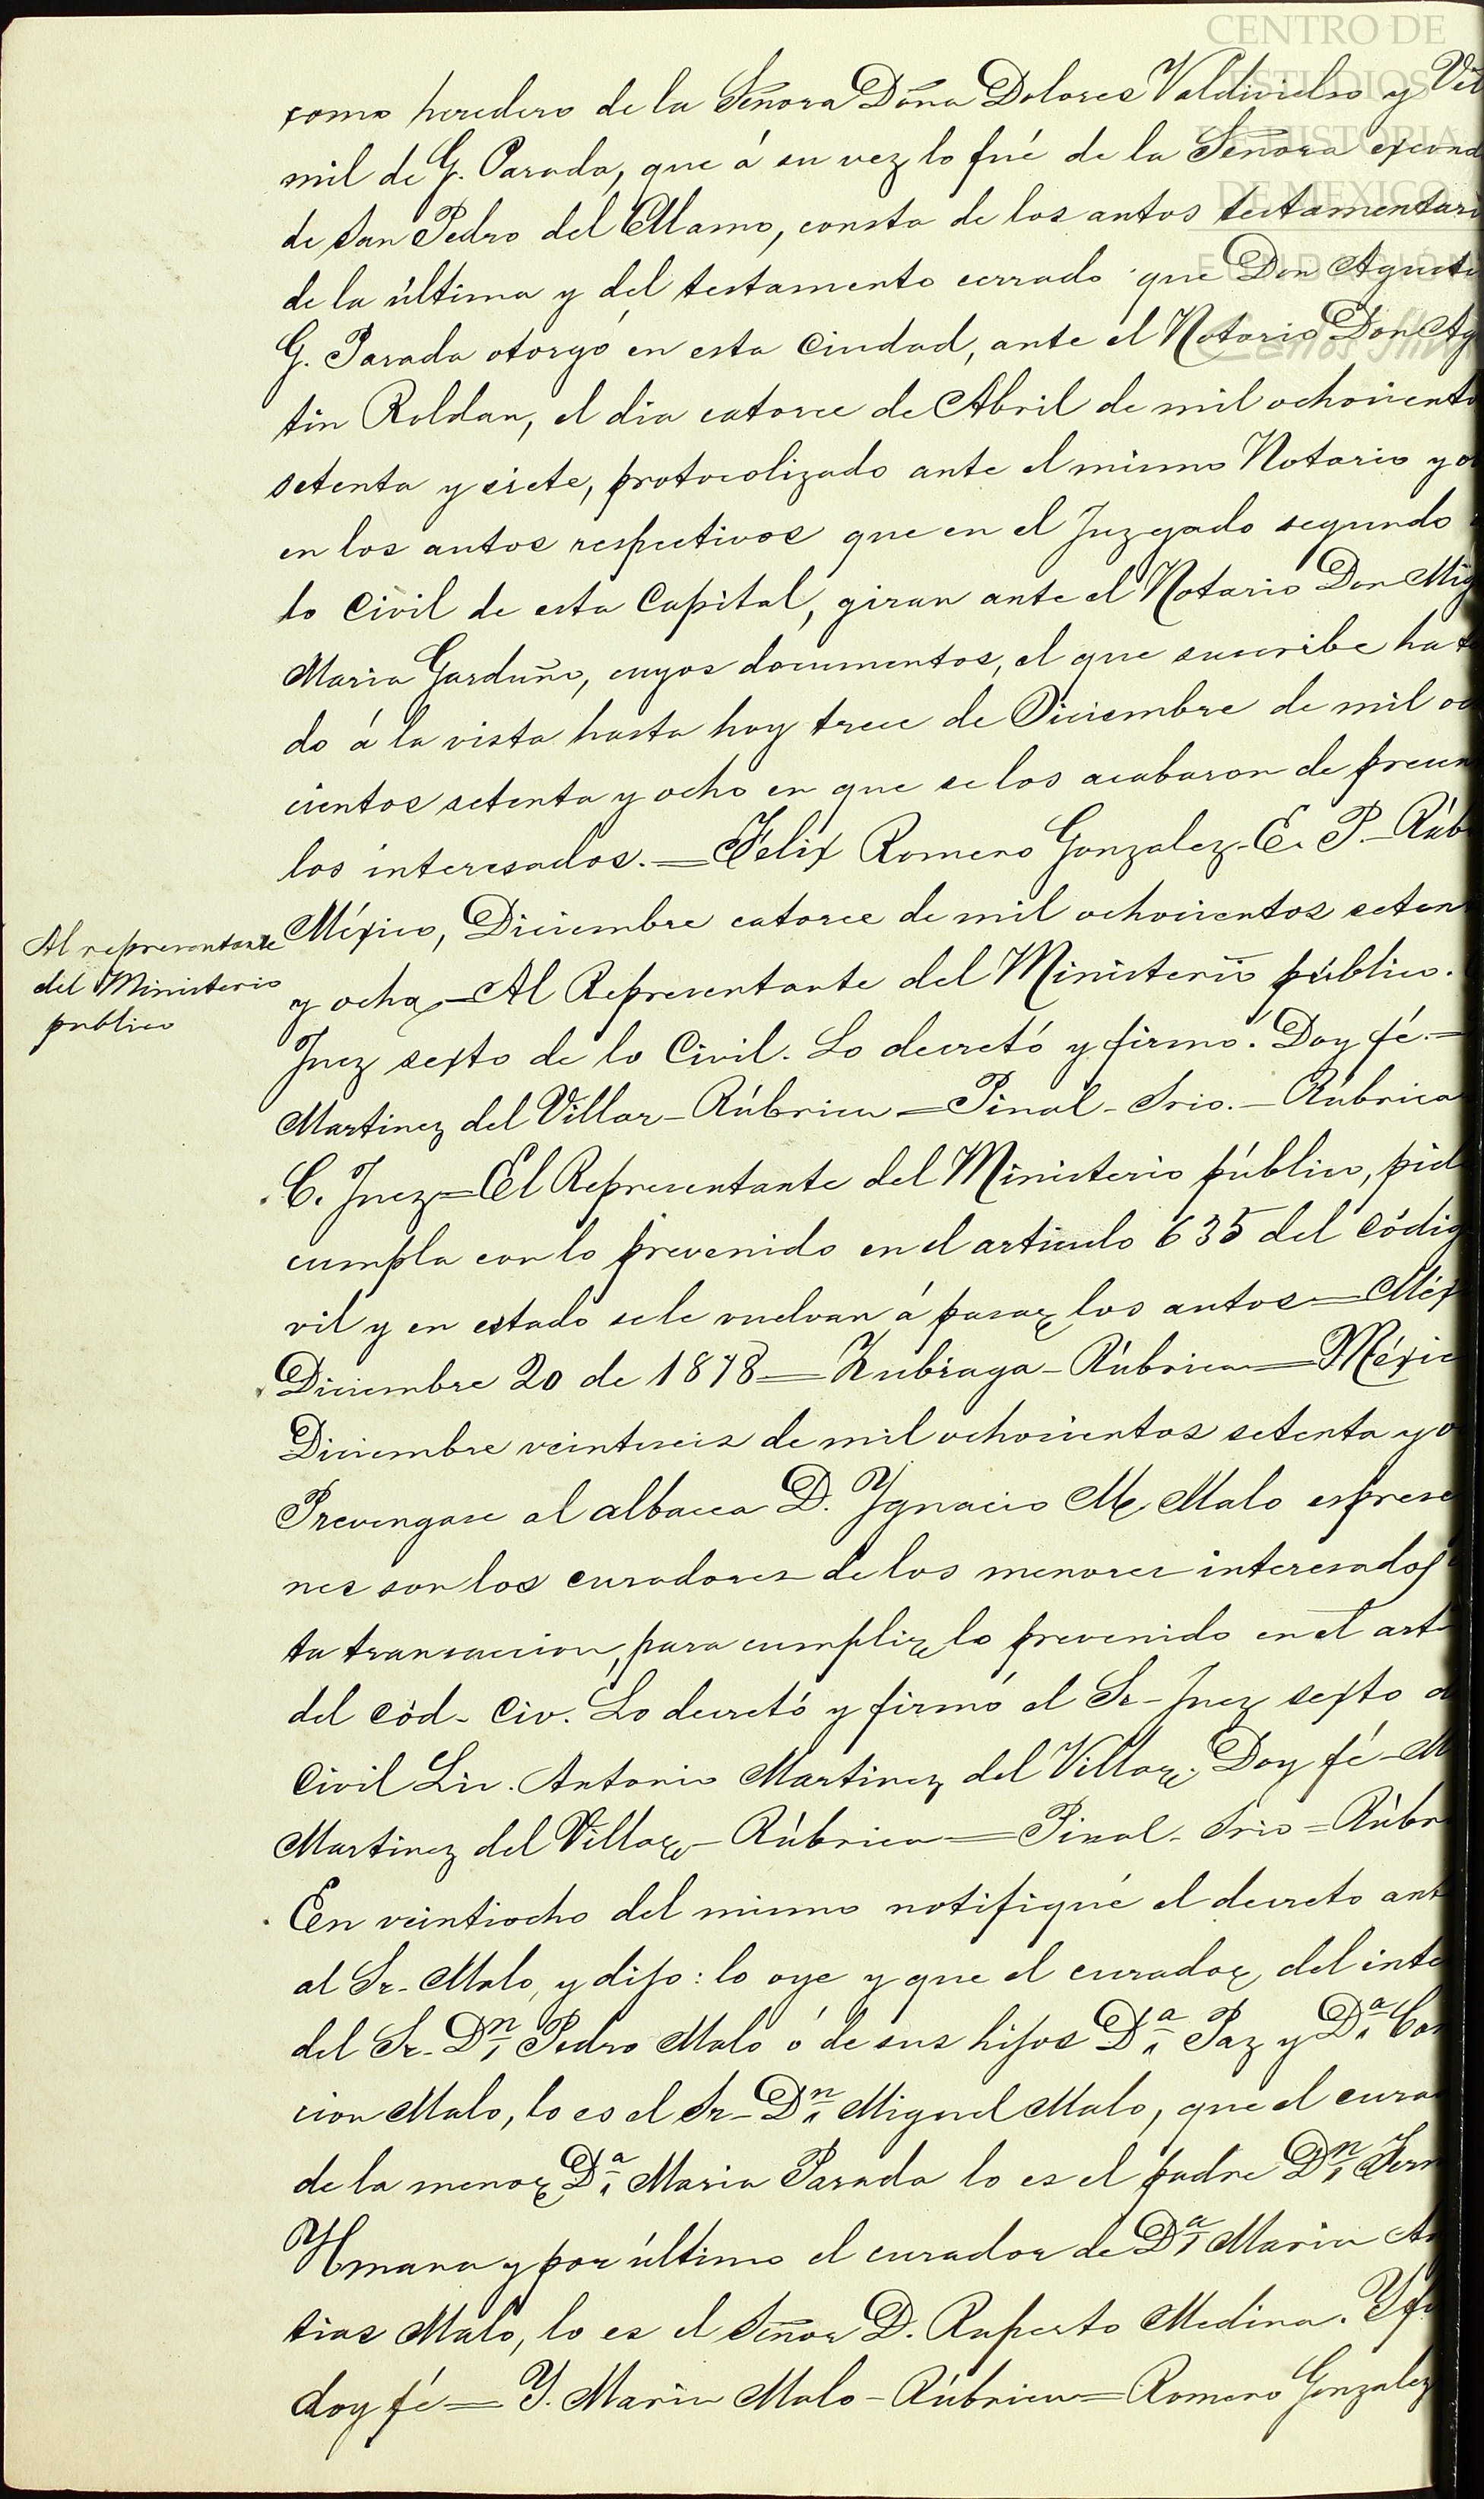 como heredero de la Señora Doña Dolores Valdivielso y Vi
mil de G. Parada, que á su vez lo fué de la Señora excond
de San Pedro del Alamo, consta de los autos testamentari
de la última y del testamento cerrado que Don Agusti
G. Parada otorgó en esta Ciudad, ante el Notario Don Ag
tin Roldan, el dia catorce de Abril de mil ochociento
setenta y siete, protocolizado ante el mismo Notario y
en los autos respectivos que en el Juzgado segundo
lo Civil de esta Capital, giran ante el Notario Don Mig
Maria Garduño, cuyos documentos, el que suscribe ha te
do á la vista hasta hoy trece de Diciembre de mil oc
cientos setenta y ocho en que se los acabaron de presen
los interesados.=Félix Romero Gonzalez-E. P.-Rúb
Al representante
del Ministerio
publico
México, Diciembre catorce de mil ochocientos seten
y ocho.=Al Representante del Ministerio público.
Juez sexto de lo Civil. Lo decretó y firmó. Doy fé.=
Martinez del Villar-Rúbrica=Pinal-Srio.-Rúbrica
C. Juez=El Representante del Ministerio público, pid
cumpla con lo prevenido en el articulo 635 del Códig
vil y en estado se le vuelvan á pasar los autos=Méx
Diciembre 20 de 1878=Zubiaga-Rúbrica=Méxic
Diciembre veintiseis de mil ochocientos setenta y o
Prevengase al albacea D. Ygnacio M. Malo esprese
nes son los curadores de los menores interesados
ta transaccion, para cumplir lo prevenido en el art
del cód. Civ. Lo decretó y firmó el Sr. Juez sexto d
Civil Lic. Antonio Martinez del Villar. Doy fé-M
Martinez del Villar-Rúbrica=Pinal-Srio=Rúbr
En veintiocho del mismo notifiqué el decreto ant
al Sr. Malo, y dijo: lo oye y que el curador del inte
del Sr. Dn. Pedro Malo ó de sus hijos Da. Paz y Da. Con
cion Malo, lo es el Sr. Dn. Miguel Malo, que el cura
de la menor Da. Maria Parada lo es el padre Dn. Fern
Ymana y por último el curador de Da. Maria An
tias Malo, lo es el Señor D. Ruperto Medina. Y fi
doy fé=Y. Maria Malo-Rúbrica=Romero Gonzalez
CENTRO DE
ESTUDIOS
DE HISTORIA
DE MEXICO
FUNDACIÓN